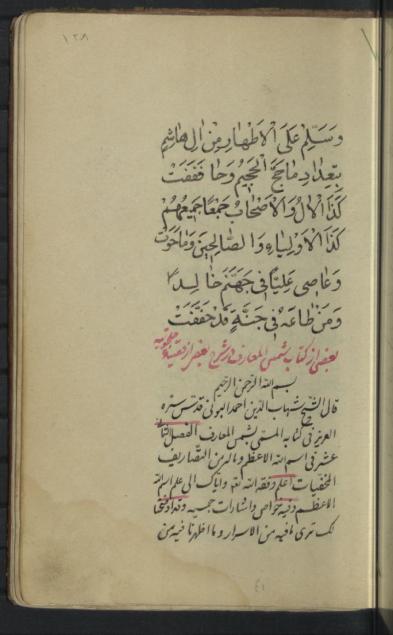 ١٢٨
وَسَلِّمْ عَلَى الْاَطْهَارِ مِنْ اٰلِ هَاشِمٍ
بِتِعْدَادِ مَا حَجَّ الْحَجِيجُ وَحَا فَفَفَتْ
كَذَا الْاٰلُ وَالْاَصْحَابُ جَمْعًا جَمِيعُهُمْ
كَذَا الْاَوْلِيَاءِ وَالصَّالِحِينَ وَمَا حَوَتْ
وَعَاصِى عَلِيًّا فِى جَهَنَّمَ خَالِدًا
وَمَنْ طَاعَهُ فِى جَنَّةٍ قَدْ
بعضى از كتاب شمس المعارف در شرح بعض از
بسم الله الرحمن الرحيم
قال الشيخ شهاب الدين احمد البونى قدس سره
العزيز فى كتابه المسمى بشمس المعارف الفصل الثانى
عشر فى اسم الله الاعظم وماله من التصاريف
المخفيات اعلم وفقه الله واياك الى علم اسم الله
الاعظم وفيه خواص واشارات
لك ترى مافيه من الاسرار وما اظهرنا فيه من